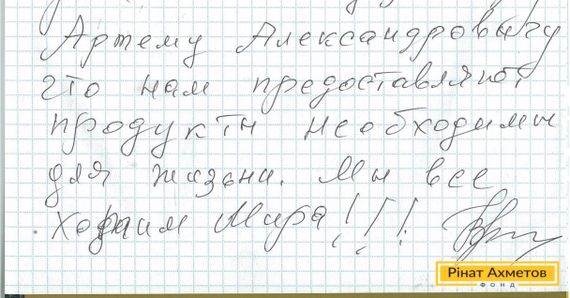 Артему Александровичу
что нам предоставляют
продукты необходимы
для жизни. Мы все
хотим Мира!!!
Рінат Ахметов
ФОНД